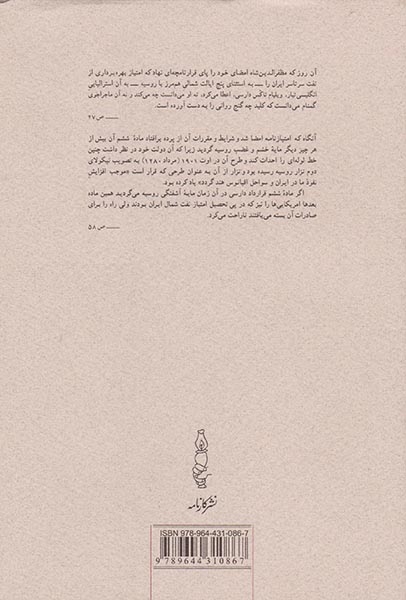 آن روز که مظفرالدین‌شاه امضای خود را پای قرارنامچه‌ای نهاد که امتیاز بهره‌برداری از
نفت سرتاسر ایران را — به استثنای پنج ایالت شمالی هم‌مرز با روسیه — به آن استرالیایی
انگلیسی‌تبار، ویلیام ناکس دارسی، اعطا می‌کرد، نه او می‌دانست چه می‌کند و نه آن ماجراجوی
گمنام می‌دانست که کلید چه گنج روانی را به دست آورده است.
— ص ۲۷
آنگاه که امتیازنامه امضا شد و شرایط و مقررات آن از پرده برافتاد مادهٔ ششم آن بیش از
هر چیز دیگر مایهٔ خشم و غضب روسیه گردید زیرا که آن دولت خود در نظر داشت چنین
خط لوله‌ای را احداث کند و طرح آن در اوت ۱۹۰۱ (مرداد ۱۲۸۰) به تصویب نیکولای
دوم تزار روسیه رسیده بود و تزار از آن به عنوان طرحی که قرار است «موجب افزایش
نفوذ ما در ایران و سواحل اقیانوس هند گردد» یاد کرده بود.
اگر مادهٔ ششم قرارداد دارسی در آن زمان مایهٔ آشفتگی روسیه می‌گردید همین ماده
بعدها امریکایی‌ها را نیز که در پی تحصیل امتیاز نفت شمال ایران بودند ولی راه را برای
صادرات آن بسته می‌یافتند ناراحت می‌کرد.
— ص ۵۸
نشر کارنامه
ISBN 978-964-431-086-7
9789644310867